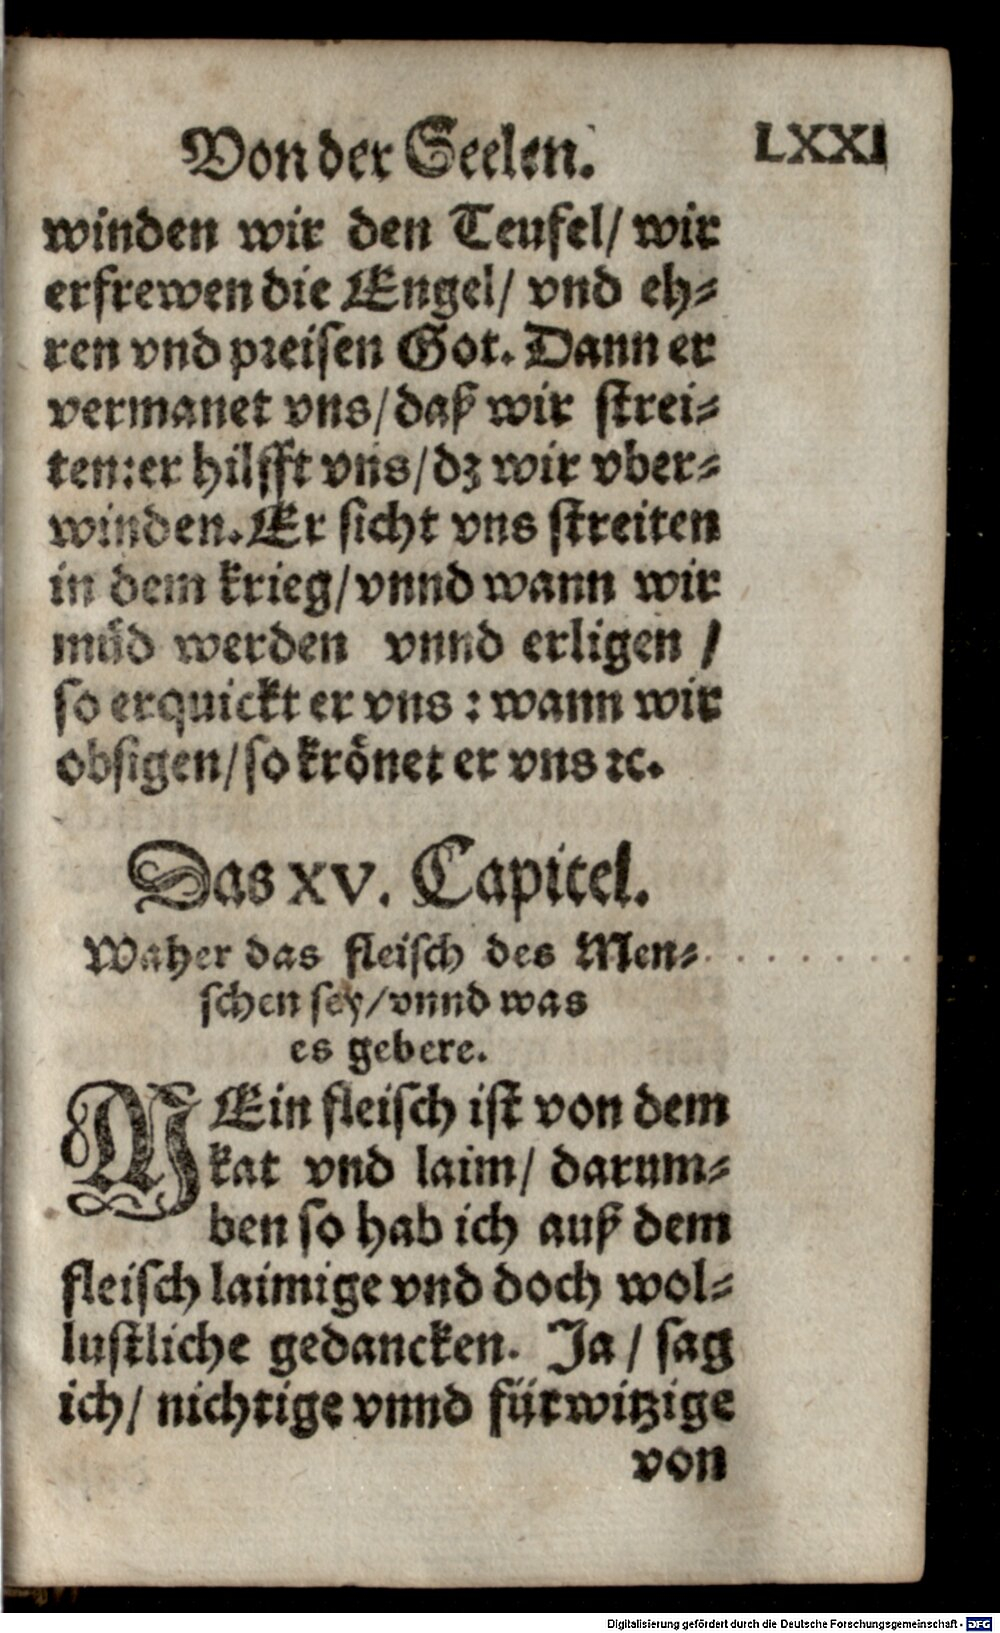 Von der Seelen. LXXI
winden wir den Teufel/ wir
erfrewen die Engel/ vnd eh⸗
ren vnd preisen Got. Dann er
vermanet vns/ daß wir strei⸗
ten: er hilfft vns/ dz wir vber⸗
winden. Er sicht vns streiten
in dem krieg/ vnnd wann wir
müd werden vnnd erligen /
so erquickt er vns : wann wir
obsigen/ so krönet er vns ꝛc.
Das XV. Capitel.
Waher das fleisch des Men⸗
schen sey/ vnnd was
es gebere.
MEin fleisch ist von dem
kat vnd laim/ darum⸗
ben so hab ich auß dem
fleisch laimige vnd doch wol⸗
lustliche gedancken. Ja/ sag
ich/ nichtige vnnd fürwitzige
von
Digitalisierung gefördert durch die Deutsche Forschungsgemeinschaft - DFG